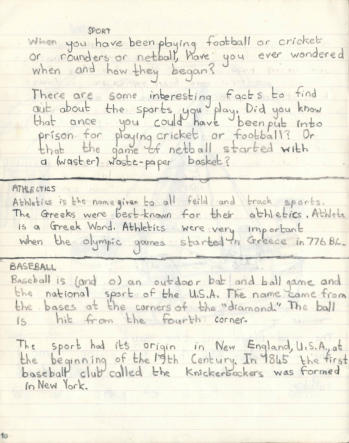 SPORT
When you have been playing football or cricket
or rounders or netball, have you ever wondered
when and how they began?
There are some interesting facts to find
out about the sports you play. Did you know
that once you could have been put into
prison for playing cricket or football? Or
that the game of netball started with
a (waster) waste-paper basket?
ATHLETICS
Athletics is the name given to all feild and track sports.
The Greeks were best-known for their athletics. Athlete
is a Greek Word. Athletics were very important
when the olympic games started in Greece in 776 BC.
BASEBALL
Baseball is (and o) an outdoor bat and ball game and
the national sport of the U.S.A. The name came from
the bases at the corners of the "diamond." The ball
is hit from the fourth corner.
The sport had its origin in New England, U.S.A., at
the beginning of the 19th Century. In 1845 the first
baseball club called the Knickerbockers was formed
in New York.
10